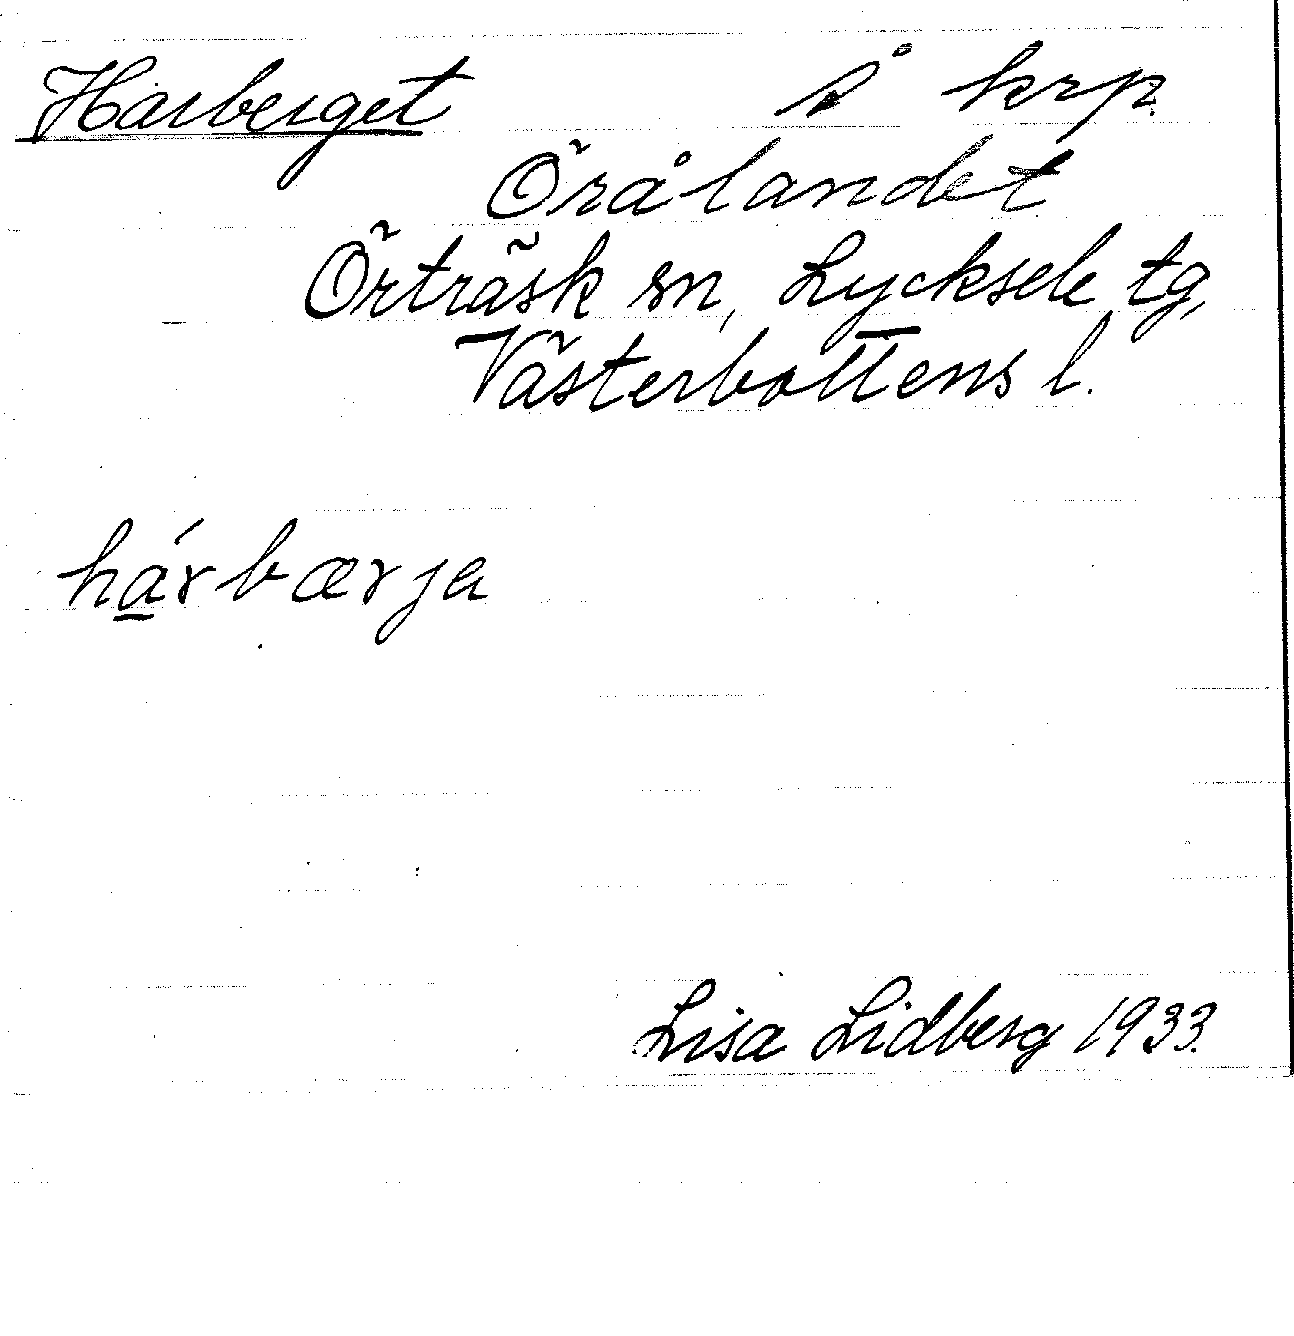 Harberget å krp.
Örålandet
Örträsk sn, Lycksele tg,
Västerbottens l.
hа̲́rbærja
Lisa Lidberg 1933.